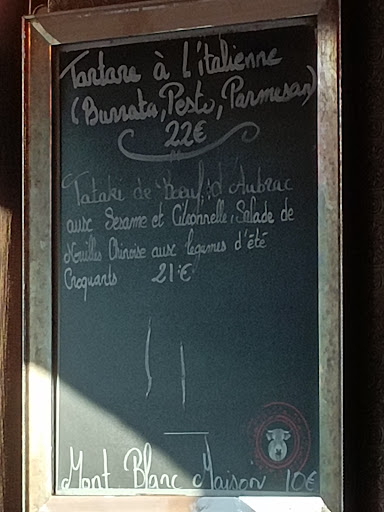 Tartare à L'italienne
(Burrata, Pesto, Parmesan)
22€
Tataki de Boeuf d'Aubrac
aux Sesame et Citronnelle, Salade de
Nouilles Chinoise aux legumes d'été
Croquants 21€
Mont Blanc Maison 10€